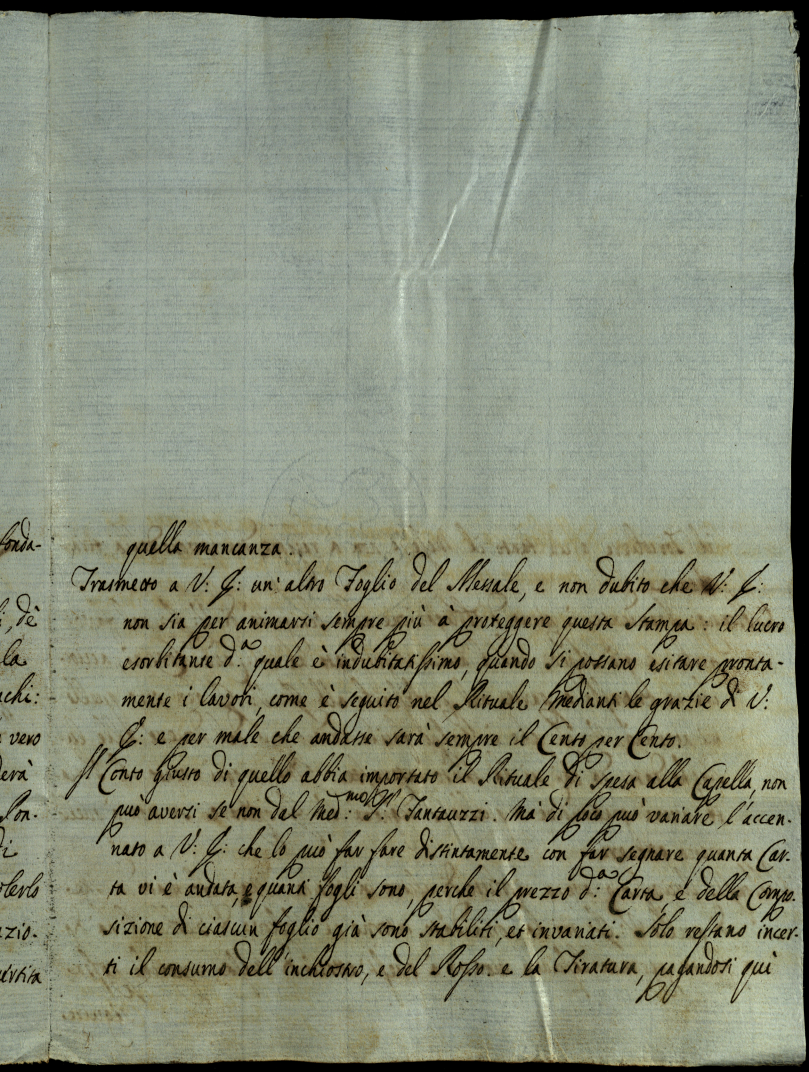 fonda-
quella mancanza.
Trasmetto a V: E: un' altro Foglio del Messale, e non dubito che V: E:
i, dè
non sia per animarsi sempre più à proteggere questa Stampa: il lucro
la
esorbitante d.a quale è indubitatissimo, quando si possano esitare pronta-
chi:
mente i lavori, come è seguito nel Rituale Medianti le grazie di V:
vero
E: e per male che andasse sarà sempre il Cento per Cento.
derà
Il Conto giusto di quello abbia importato il Rituale di spesa alla Capella, non
Pon-
può aversi se non dal Med:mo Sr. Fantauzzi. Mà di poco può variare l'accen-
di
nato a V: E: che lo può far fare distintamente con far segnare quanta Car-
olerlo
ta vi è andata, e quanti fogli sono, perche il prezzo d:a Carta, e della Compo-
azio-
sizione di ciascun foglio già sono stabiliti, et invariati. Solo restano incer-
artita
ti il consumo dell'inchiostro, e del Rosso. e la Tiratura, pagandosi quì